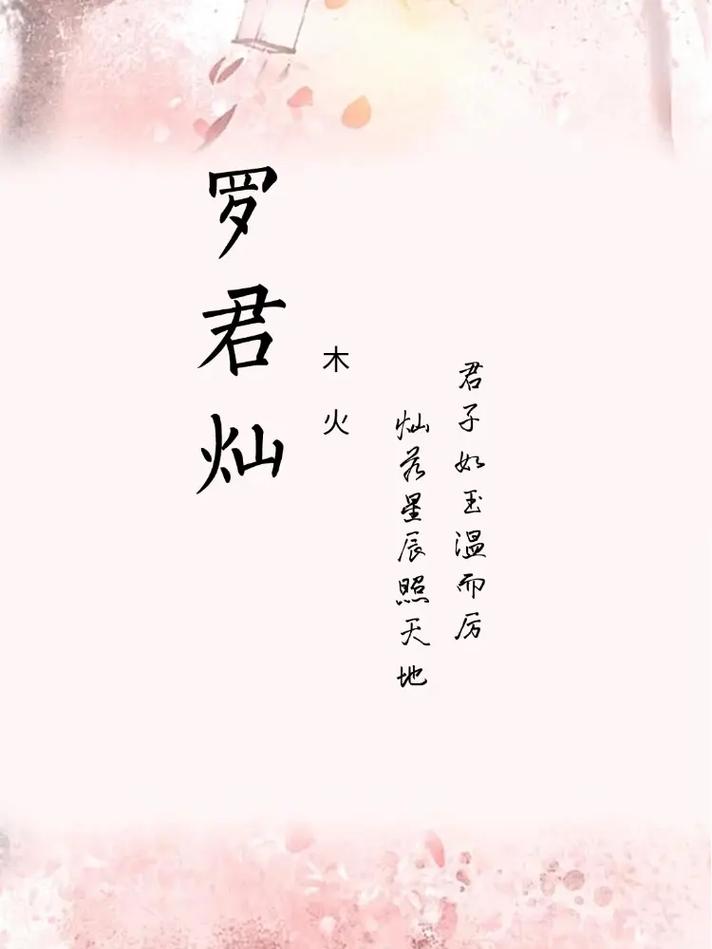 君子如玉温而厉
灿若星辰照天地
木火
罗君灿